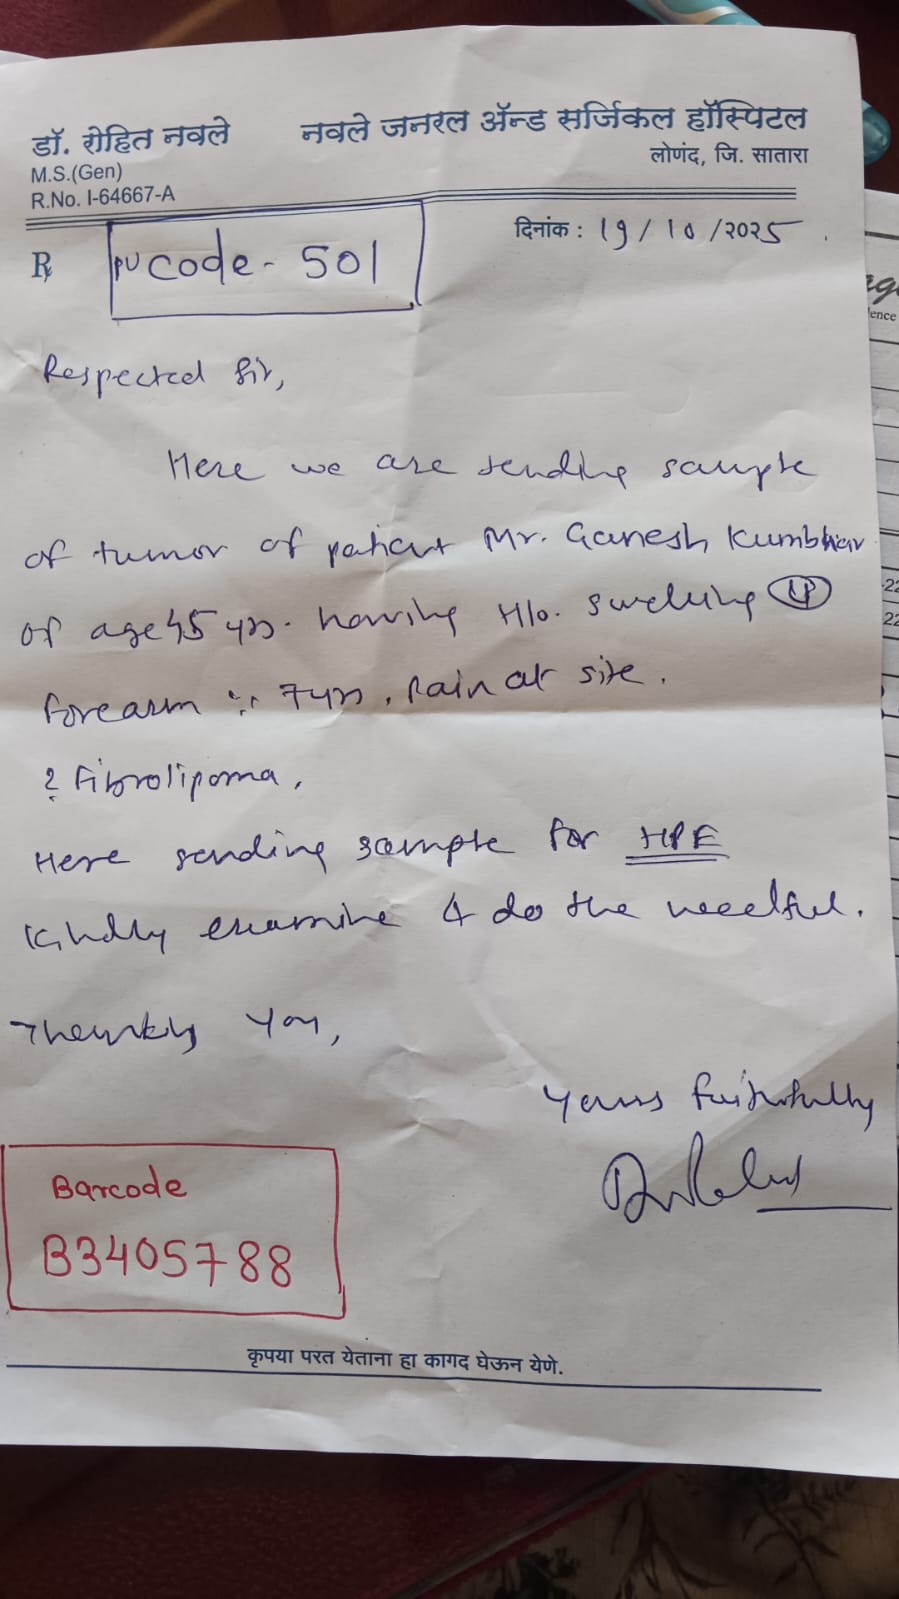 डॉ. रोहित नवले
M.S.(Gen)
R.No. I-64667-A
नवले जनरल ॲन्ड सर्जिकल हॉस्पिटल
लोणंद, जि. सातारा
दिनांक : 19/10/2025
℞
PU code - 501
Respected Sir,
Here we are sending sample
of tumor of patient Mr. Ganesh Kumbhar
of age 45 yrs. having H/o. swelling
forearm ∵ 7 yrs, Pain at site.
? Fibrolipoma.
Here sending sample for HPE
Kindly examine & do the needful.
Thanking You,
Yours faithfully
Barcode
B3405788
कृपया परत येताना हा कागद घेऊन येणे.